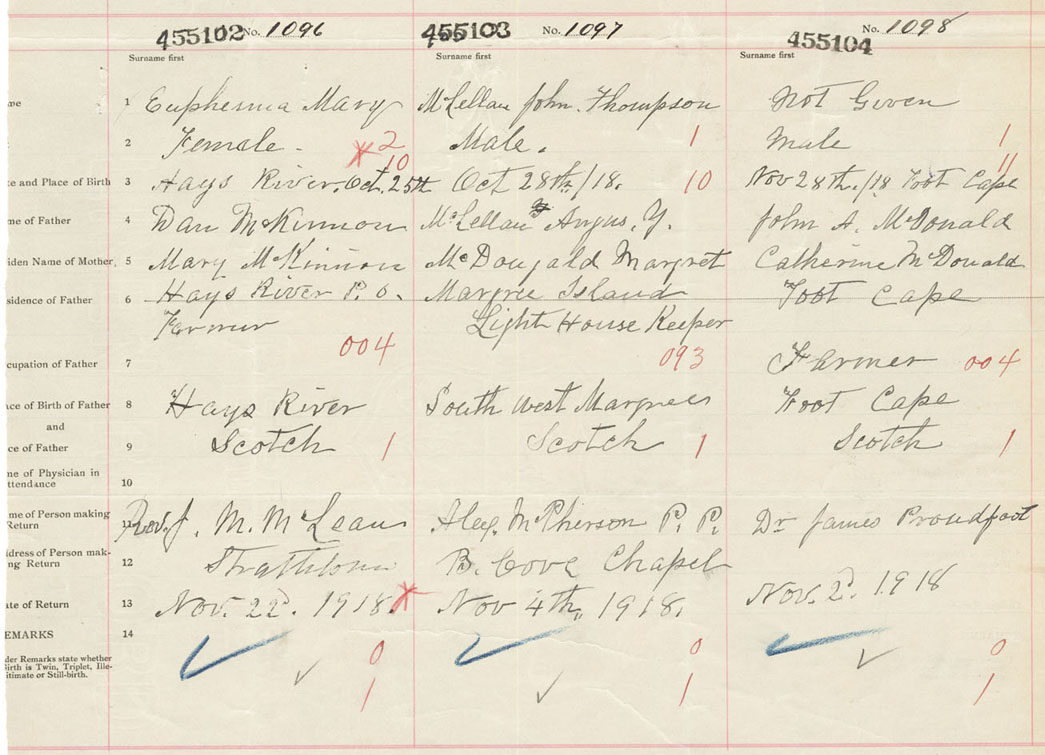 455102 No. 1096 455103 No. 1097 455104 No. 1098
Surname first Surname first Surname first
me 1 Euphemia Mary McLellan John. Thompson Not Given
2 Female. X 2 Male. 1 Male 1
te and Place of Birth 3 Hays River. Oct. 25th 10 Oct 28th/18. 10 Nov 28th./18 Foot Cape 11
me of Father 4 Dan McKinnon McLellan Angus, Y. John A. McDonald
iden Name of Mother 5 Mary McKinnon McDougald Margret Catherine McDonald
sidence of Father 6 Hays River P.O. Margree Island Foot Cape
Farmer Light House Keeper
cupation of Father 7 004 093 Farmer 004
ace of Birth of Father 8 Hays River South West Margree Foot Cape
and
ce of Father 9 Scotch 1 Scotch 1 Scotch 1
me of Physician in
ttendance 10
me of Person making
Return 11 Rev. J. M. McLean Alex. McPherson P. P. Dr James Proudfoot
ddress of Person mak-
ng Return 12 Strathlorn B. Cove Chapel
ate of Return 13 Nov. 22d. 1918. X Nov 4th, 1918. Nov. 2d. 1918
EMARKS 14
der Remarks state whether
Birth is Twin, Triplet, Ille-
itimate or Still-birth.
0 0 0
1 1 1